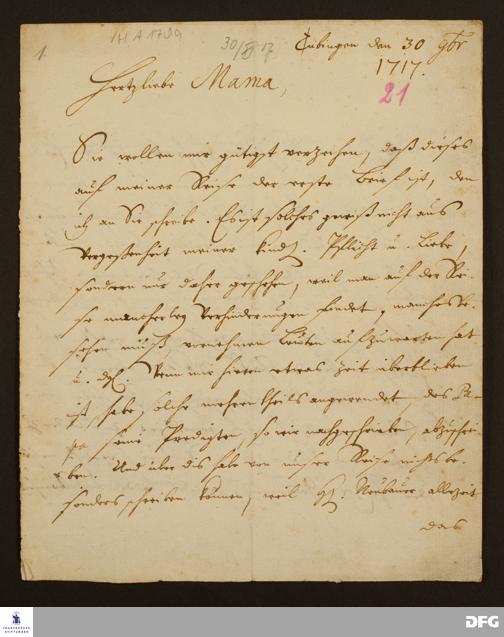 1.
H A 179a
30/XI 17
Tübingen den 30 9br
1717.
21
Hertzliebe Mama,
Sie wollen mir gütigst verzeihen, daß dieses
auf meiner Reise der erste Brief ist, den
ich an Sie schreibe. Es ist solches gewiß nicht aus
Vergeßenheit meiner kindl. Pflicht u. Liebe,
sondern nur daher geschehen, weil man auf der Rei-
se mancherley Verhinderungen findet, manches be-
sehen muß, vornehmen Leuten aufzuwarten hat
u. dgl. Wenn mir hierin etwas Zeit überblieben
ist, habe solche mehrentheils angewendet, des Pa-
pa seine Predigten, so wir nachgeschrieben, abzuschrei-
ben. Und über dis habe von unser Reise nichts be-
sonders schreiben können, weil H. Neubauer allezeit
das
FRANCKESCHE
STIFTUNGEN
DFG